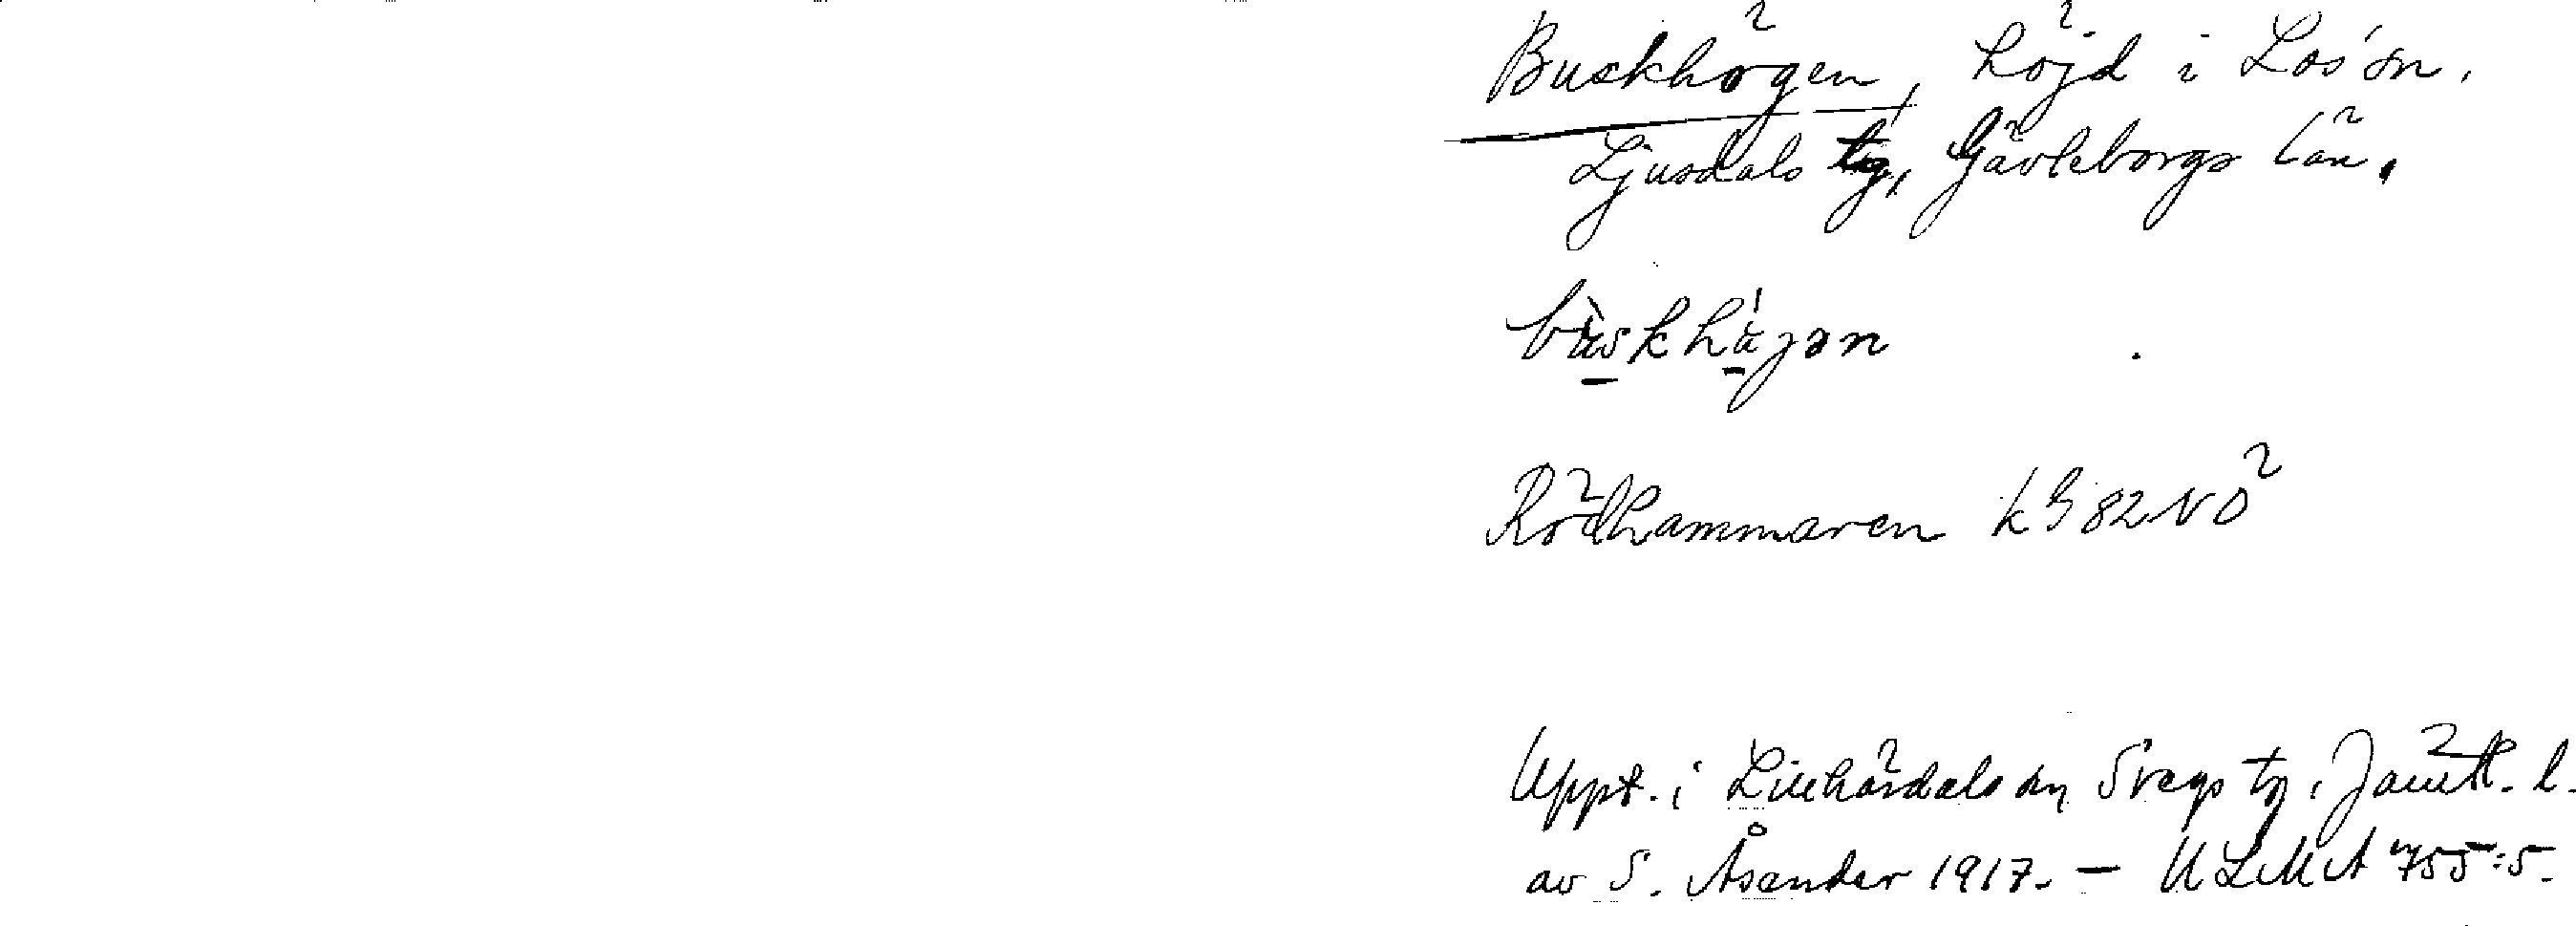 Buskhögen, höjd i Los sn,
Ljusdals tg, Gävleborgs län.
bùskhǻjən
Rödhammaren kG 82 NÖ
Uppt. i Lillhärdals sn, Svegs tg, Jämtl. l.
av S. Åsander 1917. — ULMA 755:5.